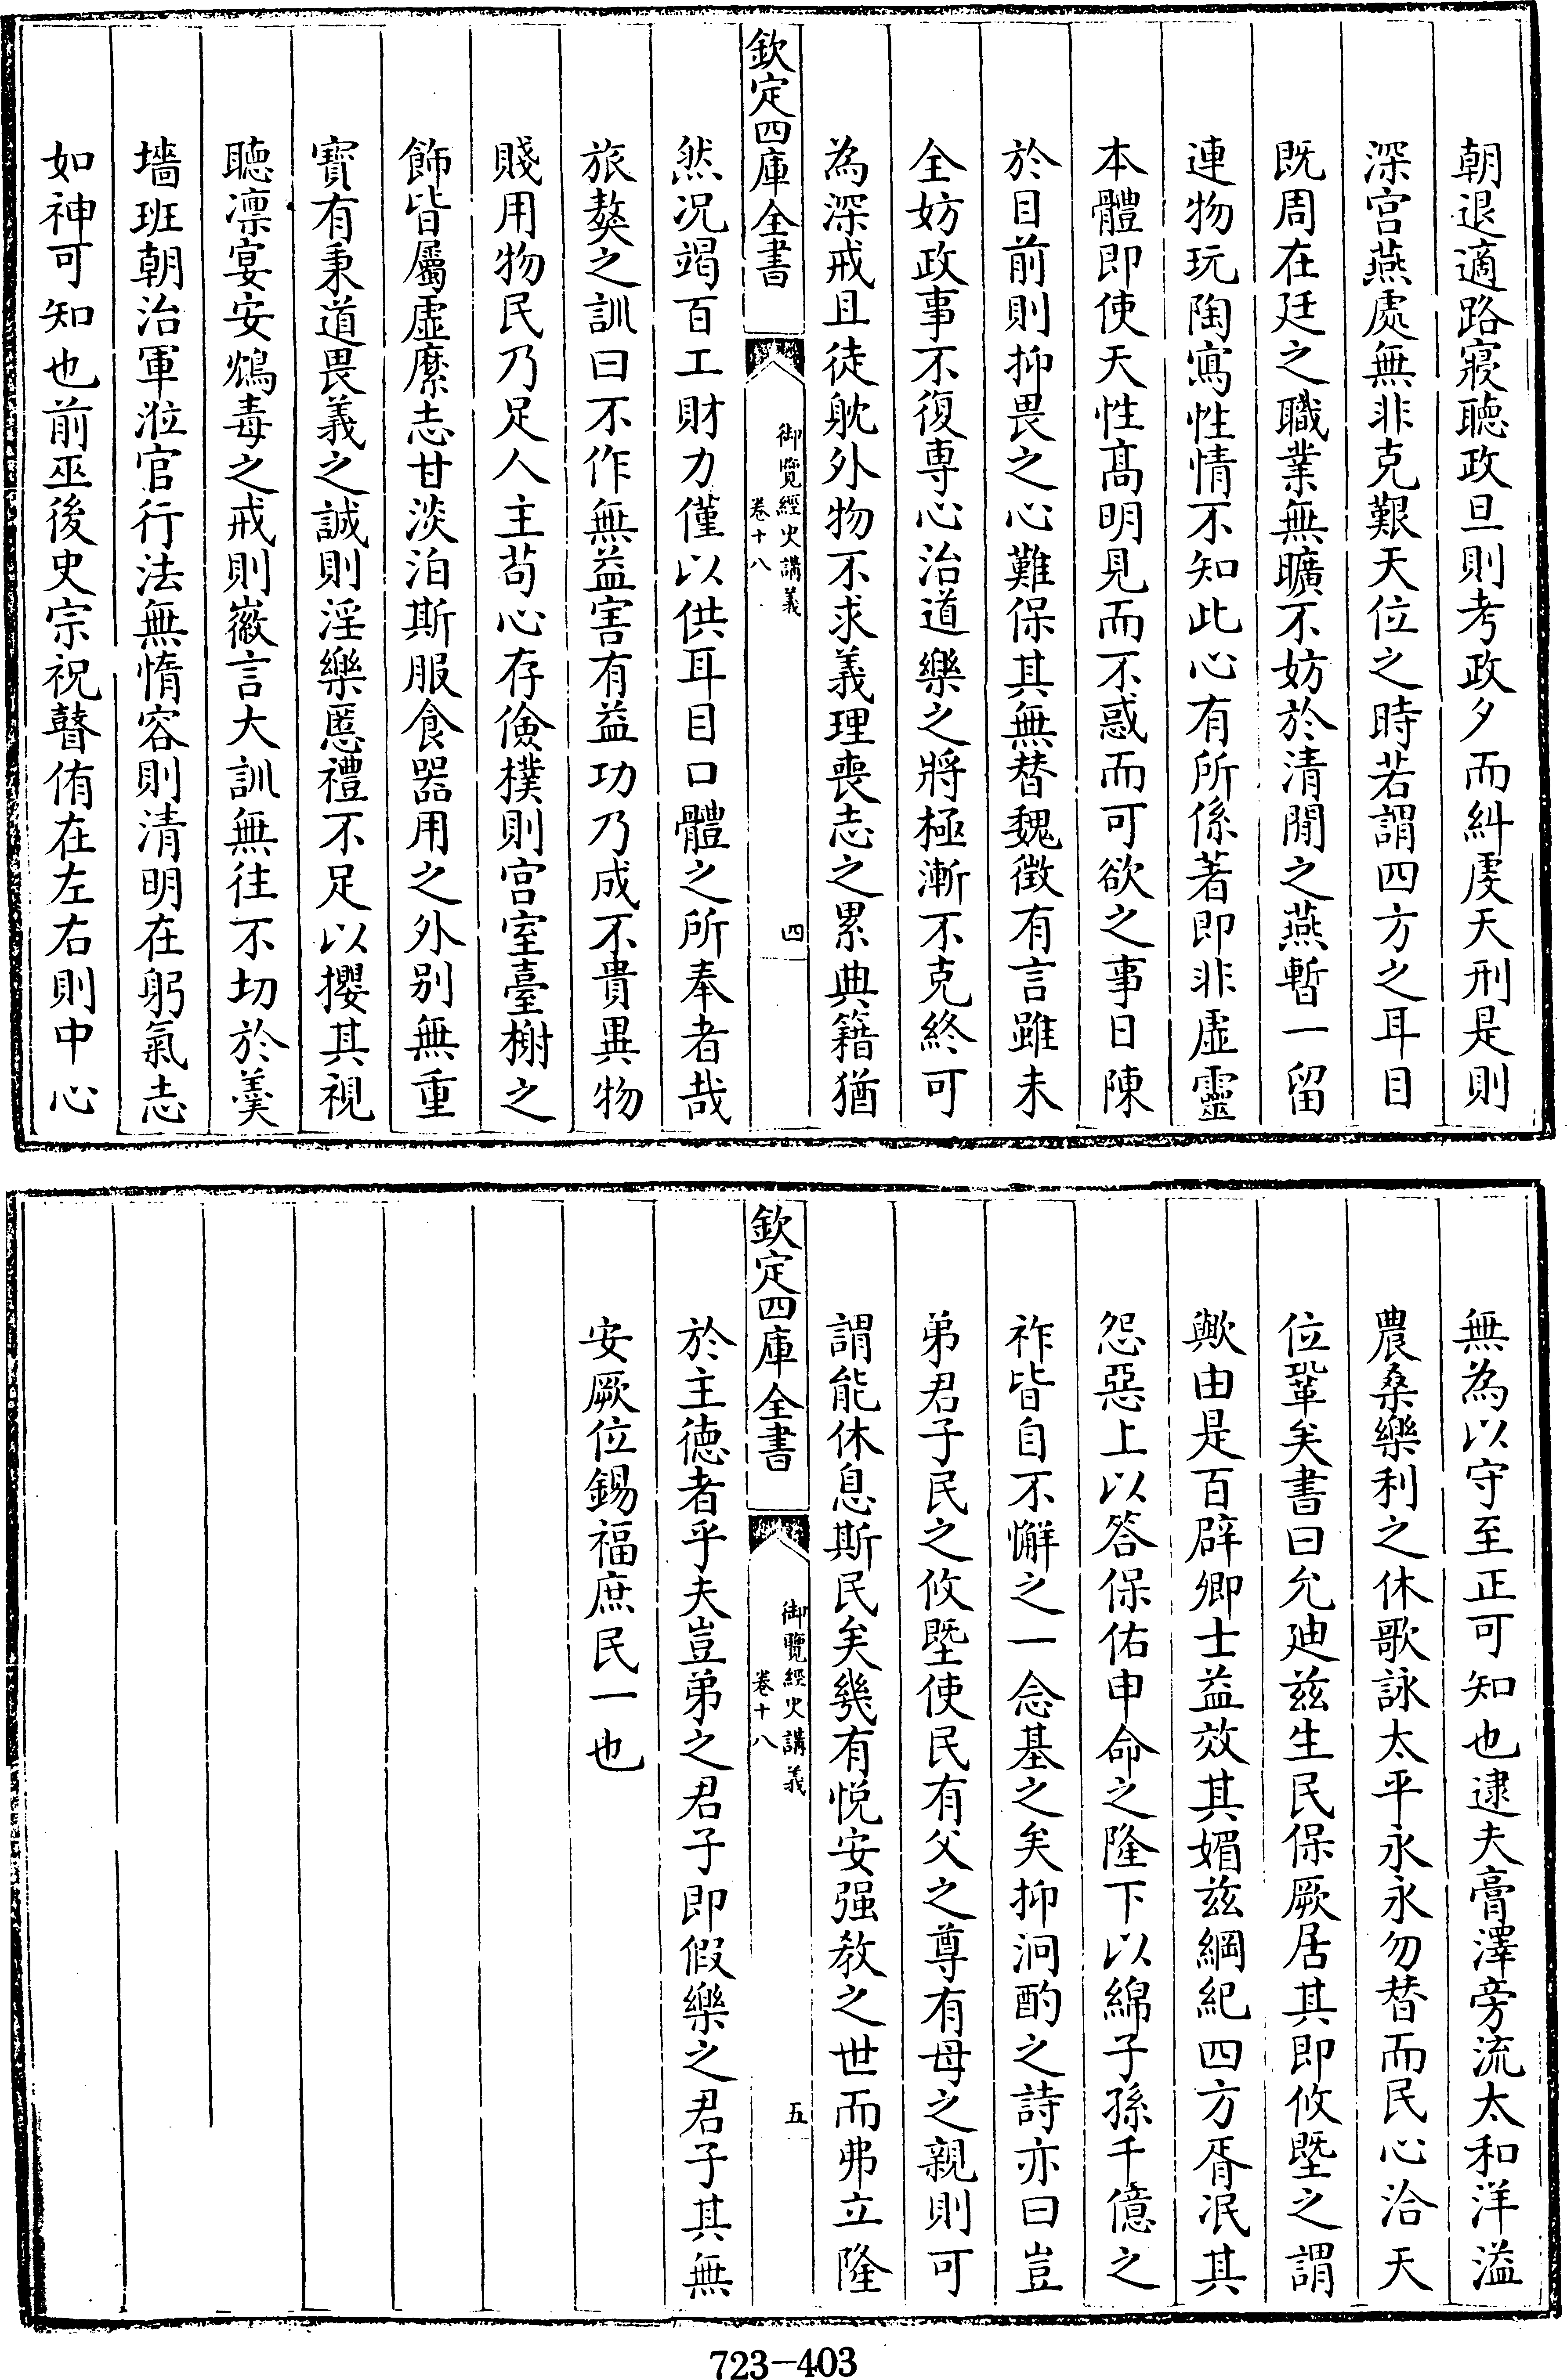 朝退適路寢聽政旦則考政夕而糾虔天刑是則
深宫燕處無非克艱天位之時若謂四方之耳目
既周在廷之職業無曠不妨於清閒之燕暫一留
連物玩陶寫性情不知此心有所係著即非虛靈
本體即使天性髙明見而不惑而可欲之事日陳
於目前則抑畏之心難保其無替魏徴有言雖未
全妨政事不復専心治道樂之將極漸不克終可
為深戒且徒躭外物不求義理喪志之累典籍猶
欽定四庫全書
御覽經史講義
卷十八
四
然况竭百工財力僅以供耳目口體之所奉者哉
旅獒之訓曰不作無益害有益功乃成不貴異物
賤用物民乃足人主苟心存儉樸則宫室臺榭之
飾皆屬虛縻志甘淡泊斯服食器用之外别無重
寳有秉道畏義之誠則淫樂慝禮不足以攖其視
聽凛宴安鴆毒之戒則㣲言大訓無往不切於羮
墻班朝治軍涖官行法無惰容則清明在躬氣志
如神可知也前巫後史宗祝瞽侑在左右則中心
無為以守至正可知也逮夫膏澤旁流太和洋溢
農桑樂利之休歌詠太平永永勿替而民心洽天
位鞏矣書曰允廸兹生民保厥居其即攸塈之謂
歟由是百辟卿士益效其媚兹綱紀四方胥泯其
怨惡上以答保佑申命之隆下以綿子孫千億之
祚皆自不懈之一念基之矣抑泂酌之詩亦曰豈
弟君子民之攸塈使民有父之尊有母之親則可
謂能休息斯民矣㡬有悦安强教之世而弗立隆
欽定四庫全書
御覽經史講義
卷十八
五
於主徳者乎夫豈弟之君子即假樂之君子其無
安厥位錫福庶民一也
723-403